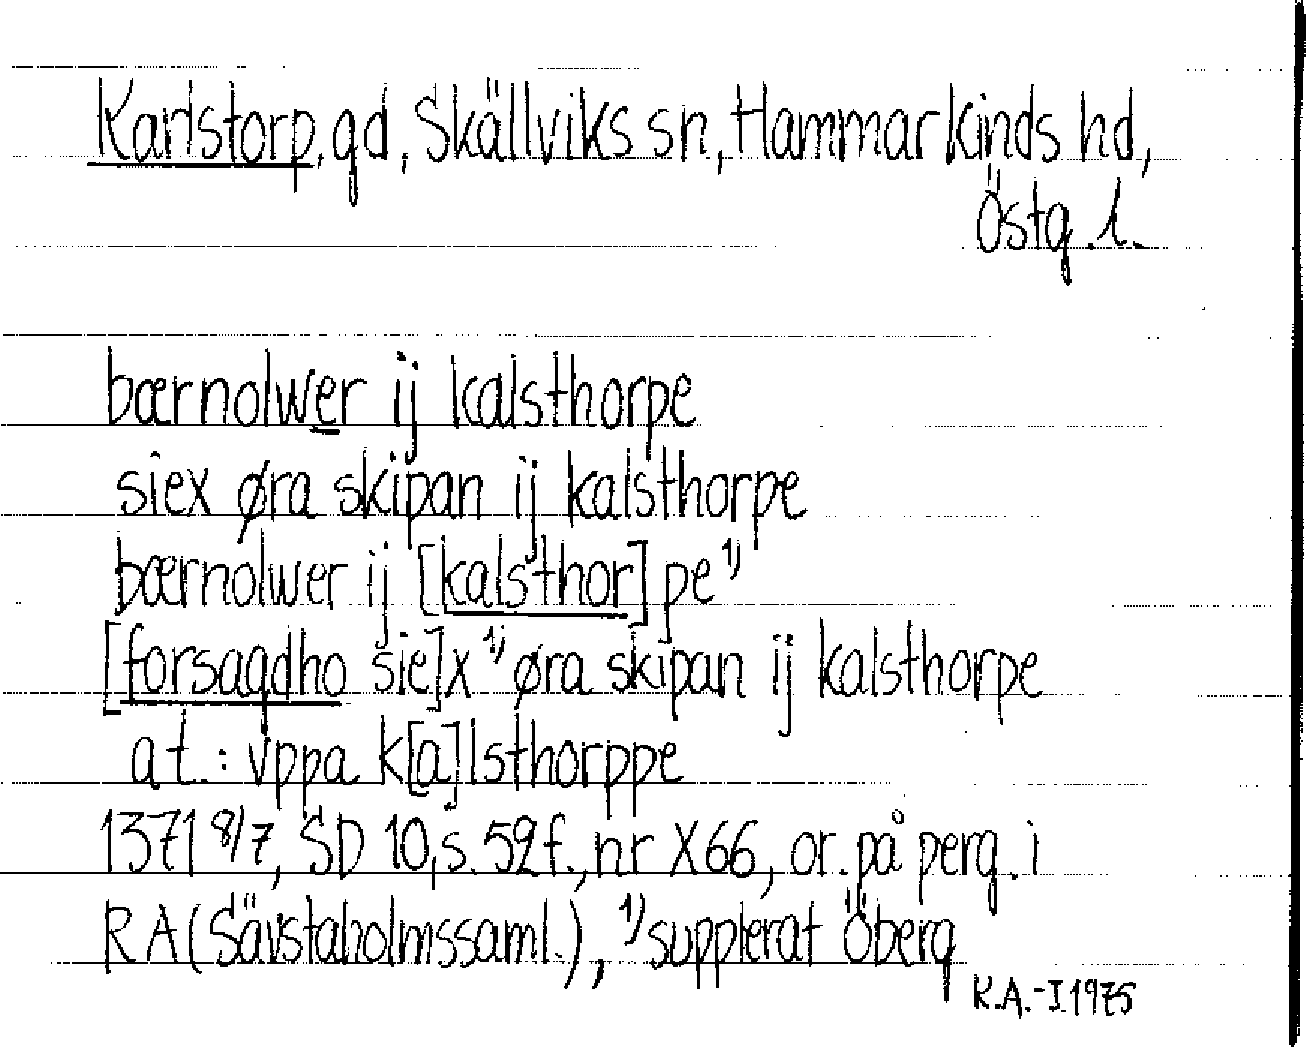 Karlstorp, gd, Skällviks sn, Hammarkinds hd,
Östg. l.
bærnolwer ij kalsthorpe
siex øra skipan ij kalsthorpe
bærnolwer ij [kalsthor]pe 1)
[forsagdho sie]x 1) øra skipan ij kalsthorpe
at.: vppa k[a]lsthorppe
1371 8/7, SD 10, s. 52 f., nr X66, or. på perg. i
RA (Sävstaholmssaml.), 1) supplerat Öberg
K.A.-I.1975